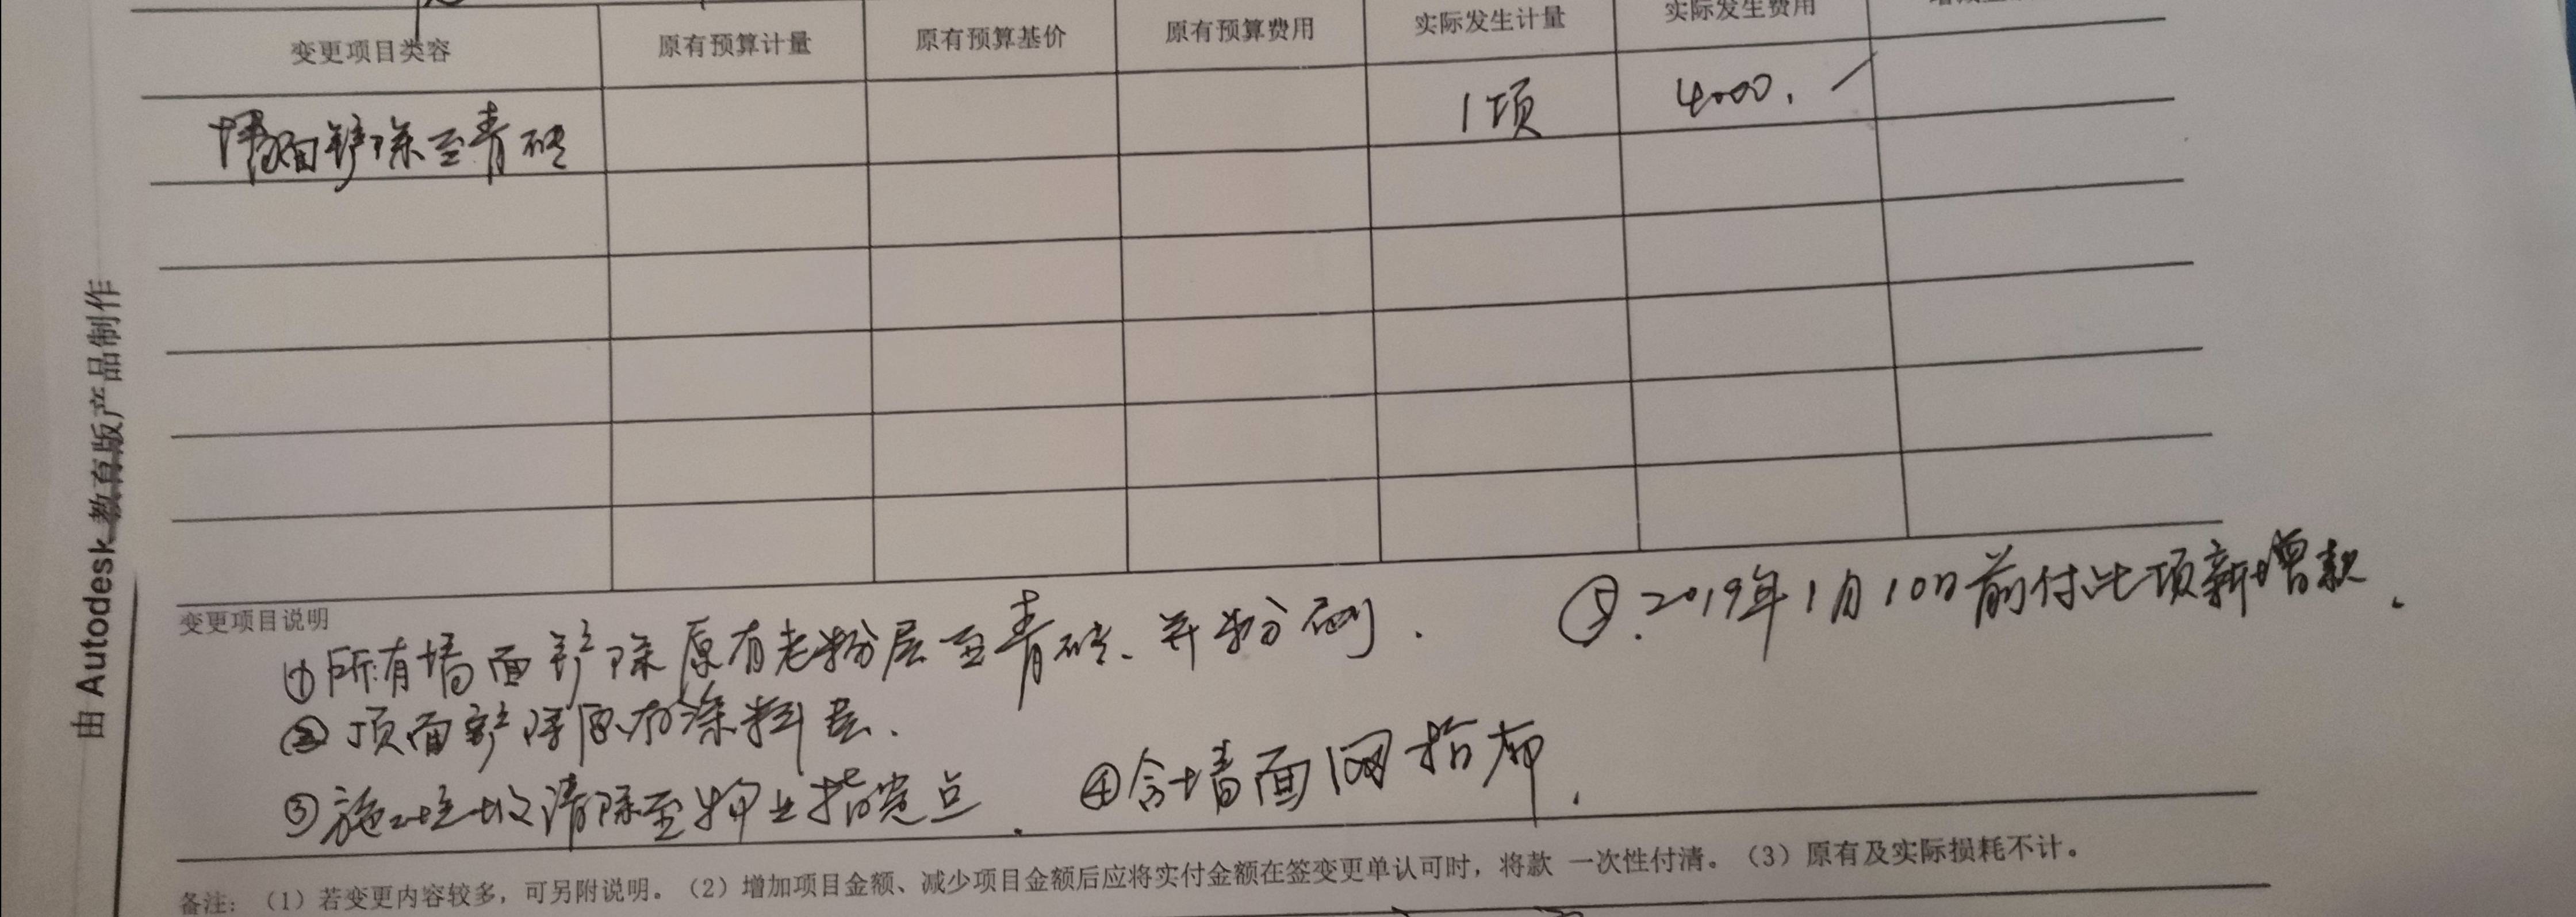 变更项目类容 原有预算计量 原有预算基价 原有预算费用 实际发生计量 实际发生费用
墙面铲除至青砖 1项 4000.
变更项目说明
①所有墙面铲除原有老粉层至青砖、并粉刷. ⑤.2019年1月10日前付此项新增款.
②顶面铲除原有涂料层.
③施工垃圾清除至物业指定点. ④含墙面网格布.
备注:(1)若变更内容较多,可另附说明。(2)增加项目金额、减少项目金额后应将实付金额在签变更单认可时,将款 一次性付清。(3)原有及实际损耗不计。
由 Autodesk 教育版产品制作